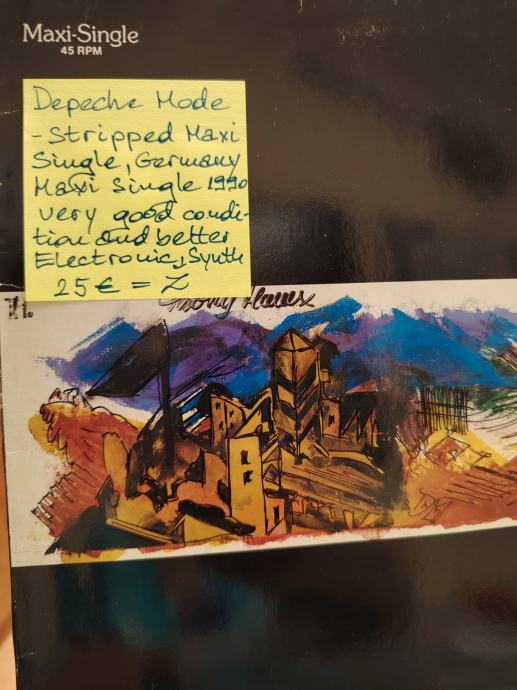 Maxi-Single
45 RPM
Depeche Mode
- Stripped Maxi
Single, Germany
Maxi Single 1990
very good condi-
tion and better
Electronic, Synth
25 € = Z